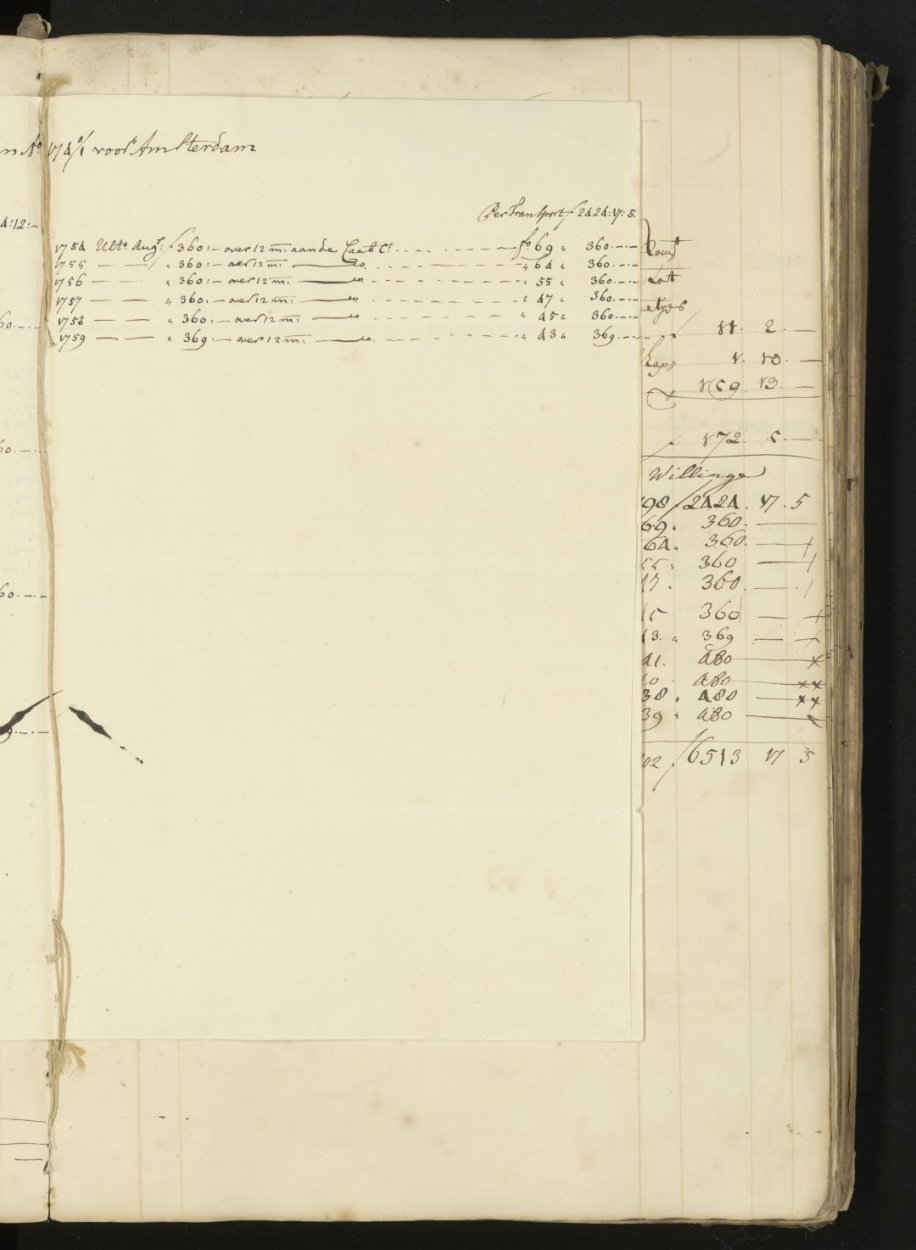 4:12:-
174 0/1 voor Amsterdam
Per Transport f 2424:17:5.
1754 Ulto Aug: f 360:— over 12 m: aande Caab Ct. fo 69 „ 360.—.—
1755 — — „ 360:— over 12 m: — do „ 64 „ 360.—.—
1756 — — „ 360:— over 12 m: — do „ 55 „ 360.—.—
1757 — — „ 360:— over 12 m: — do „ 47 „ 360.—.—
1758 — — „ 360:— over 12 m: — do „ 45 „ 360.—.—
1759 — — „ 369:— over 12 m: — do „ 43 „ 369.—.—
60.—.—
60.—.—
60.—.—
f 11. 2. —
1. 10. —
159 13. —
f 172. 5. —
Willinge
98 f 2424. 17. 5
69. 360. —
64. 360. —
55. 360 —
47. 360. —
45 360 — —
43. „ 369 — —
41. 480 —
40 480 —
38. 480 —
39. 480 —
102 f 6513 17 5